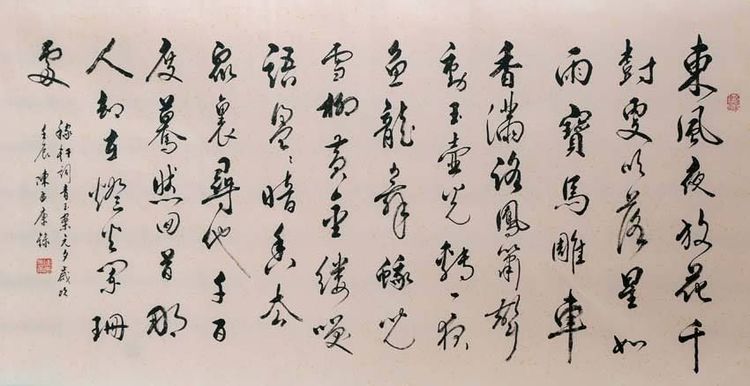 東風夜放花千
樹更吹落星如
雨寶馬雕車
香滿路鳳簫聲
動玉壺光轉一夜
魚龍舞蛾兒
雪柳黃金縷笑
語盈盈暗香去
眾裏尋他千百
度驀然回首那
人却在燈火闌珊
處
稼軒詞青玉案元夕歲次
壬辰陳康錄